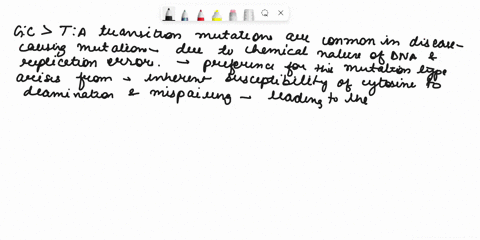 G:C > T:A transition mutations are common in disease-
causing mutation - due to chemical nature of DNA &
replication error. → preference for this mutation type
arises from → inherent susceptibility of cytosine to
deamination & mispairing → leading to the